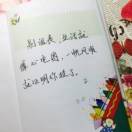 别逞我，生活就
像心电图，一帆风顺
就证明你挂了。